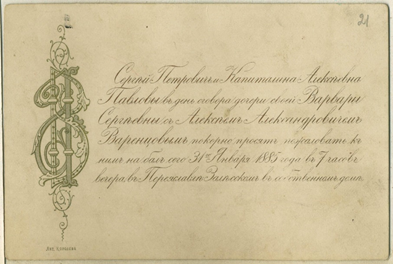 21
Сергѣй Петровичъ и Капиталина Алексѣевна
Павловы въ день сговора дочери своей Варвары
Сергѣевны съ Алексѣемъ Александровичемъ
Варенцовымъ покорно просятъ пожаловать къ
нимъ на балъ сего 31го Января 1885 года въ 7 часовъ
вечера, въ Переславлѣ Залѣсскомъ въ собственномъ домѣ.